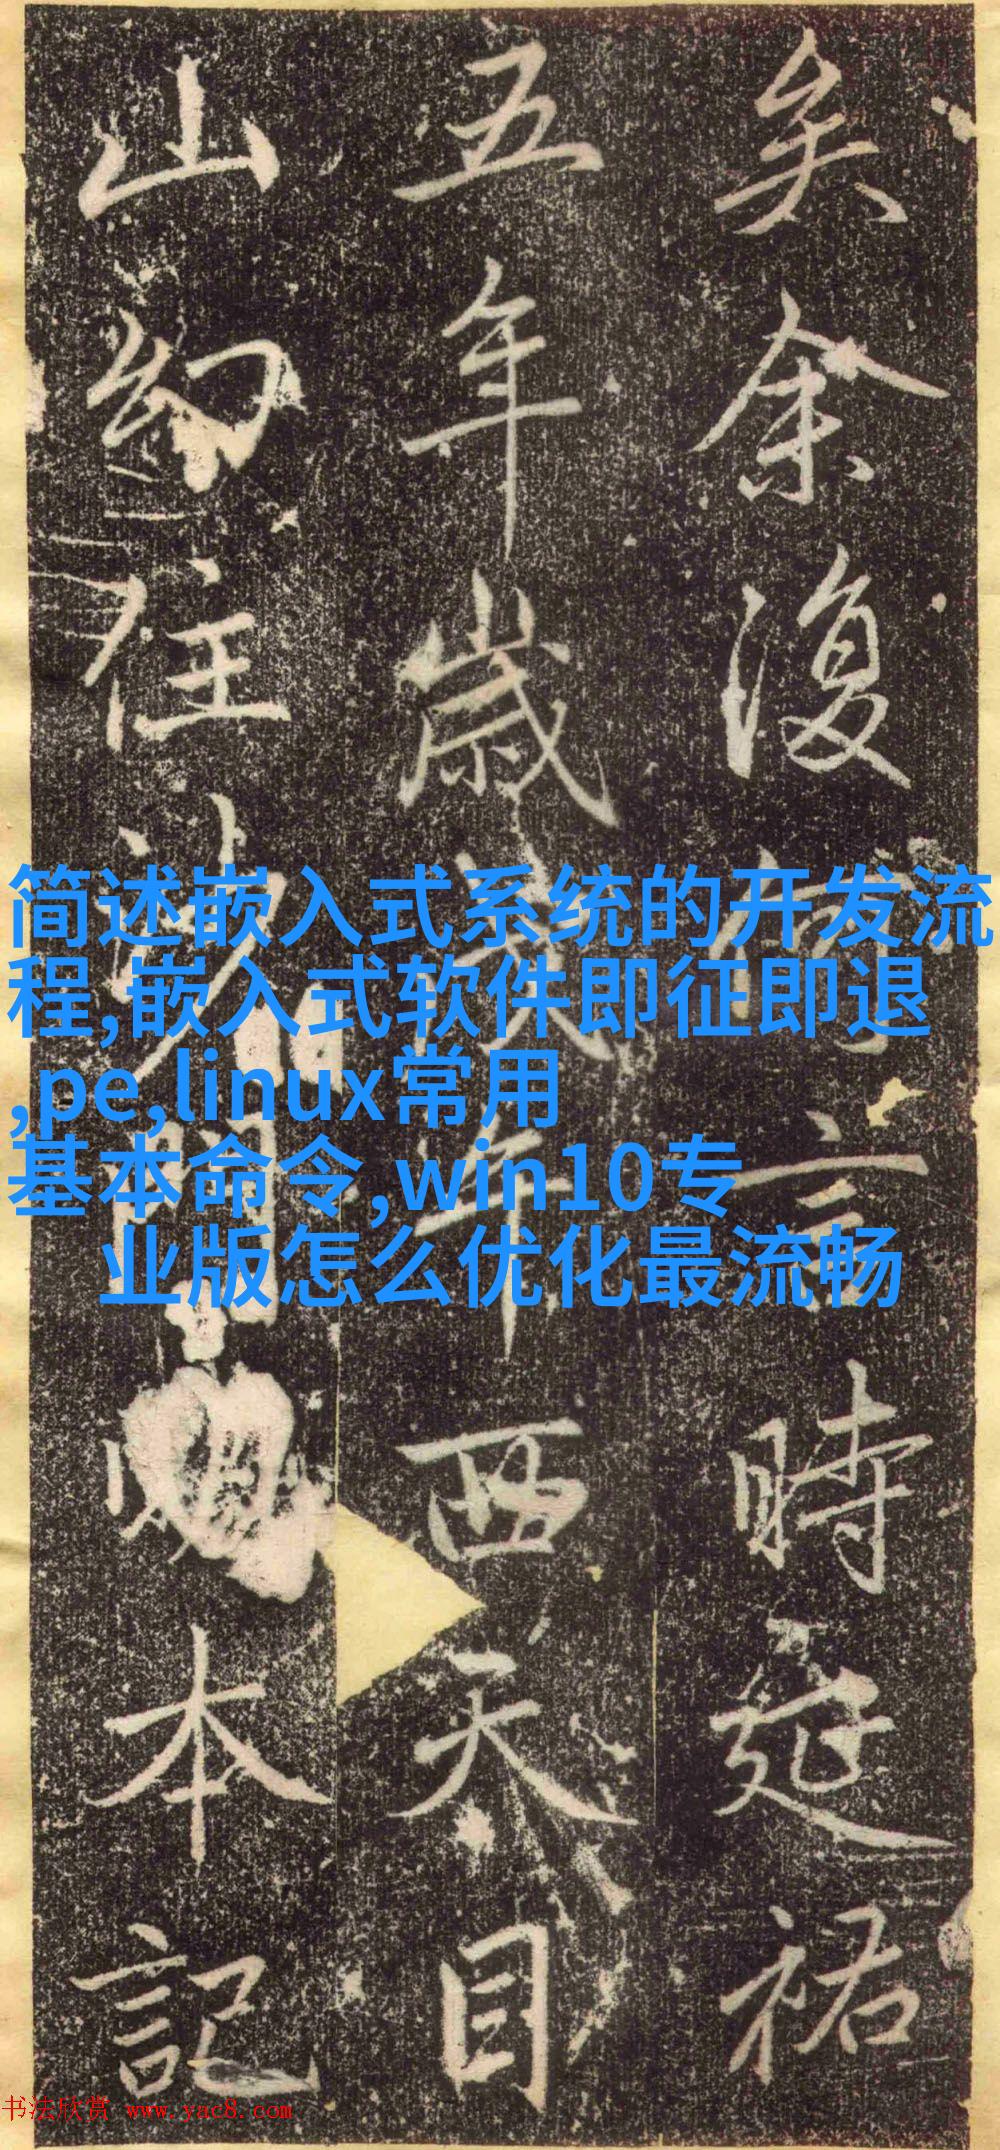 矣余復何言時延祐
五年歲戊午西天目
山幻住沙門本記
简述嵌入式系统的开发流
程,嵌入式软件即征即退
,pe,linux常用
基本命令,win10专
业版怎么优化最流畅
书法欣赏 www.yac8.com